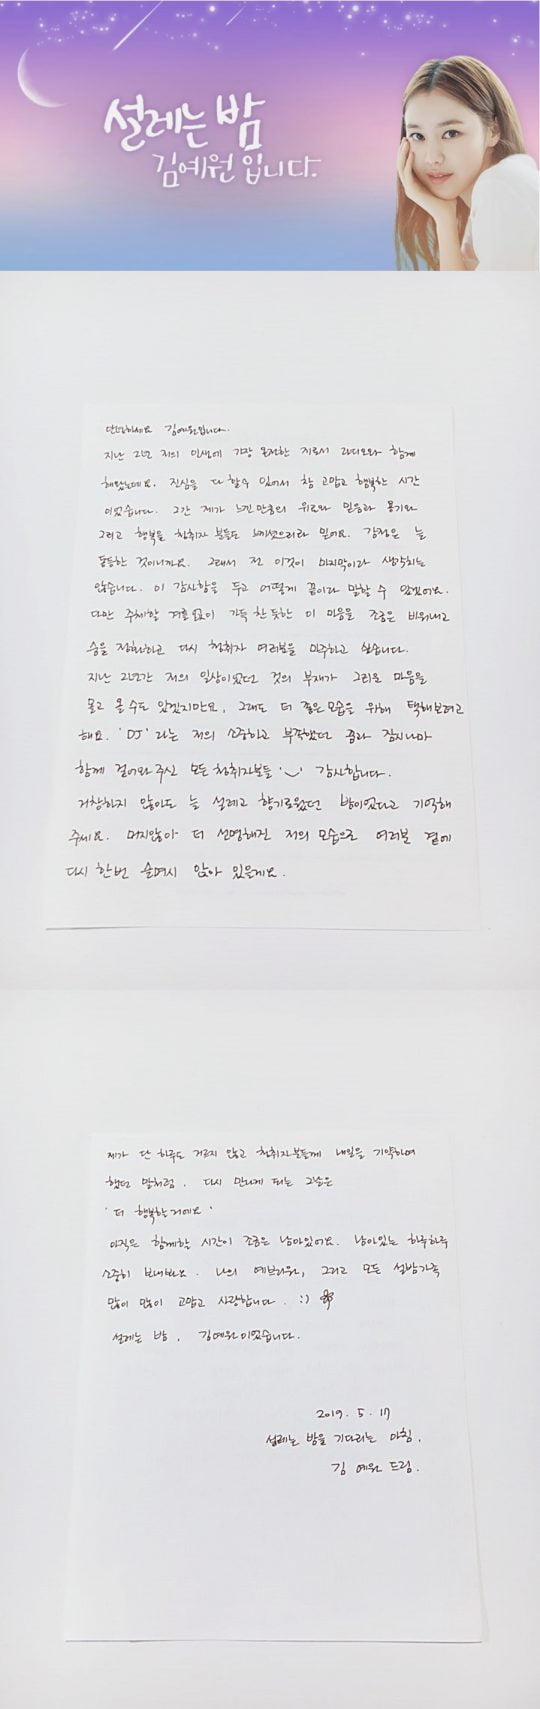 설레는 밤
김예원 입니다.
안녕하세요 김예원입니다.
지난 2년 저의 인생에 가장 온전한 지표서 라디오와 함께
해왔는데요. 진심을 다 할 수 있어서 참 고맙고 행복한 시간
이었습니다. 그간 제가 느낀 만큼의 위로와 믿음과 용기와
그리고 행복을 청취자 분들도 느끼셨으리라 믿어요. 감정은 늘
동등한 것이니까요. 그래서 전 이것이 마지막이라 생각치는
않습니다. 이 감사함을 두고 어떻게 끝이라 말할 수 있겠어요.
다만 주체할 겨를 없이 가득 찬 듯한 이 마음을 조금은 비워내고
숨을 정화하고 다시 청취자 여러분을 마주하고 싶습니다.
지난 2년간 저의 일상이었던 것의 부재가 그리운 마음을
몰고 올 수도 있겠지만요, 그래도 더 좋은 모습을 위해 택해보려고
해요. 'DJ' 라는 저의 소중하고 부족했던 꿈과 잠시나마
함께 걸어와 주신 모든 청취자분들 '◡' 감사합니다.
거창하지 않아도 늘 설레고 향기로웠던 밤이었다고 기억해
주세요. 머지않아 더 선명해진 저의 모습으로 여러분 곁에
다시 한번 슬며시 앉아 있을게요.
제가 단 하루도 거르지 않고 청취자분들께 내일을 기약하며
했던 말처럼, 다시 만나게 되는 그날은
'더 행복할거에요'
아직은 함께할 시간이 조금은 남아있어요. 남아있는 하루하루
소중히 보내봐요. 나의 예브리원, 그리고 모든 설밤가족
많이 많이 고맙고 사랑합니다. :)
설레는 밤, 김예원이었습니다.
2019. 5. 17
설레는 밤을 기다리는 아침,
김예원 드림.